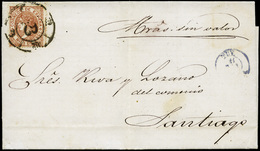 Mrãs. sin valor
Sres. Riva y Lozano
del comercio
Santiago